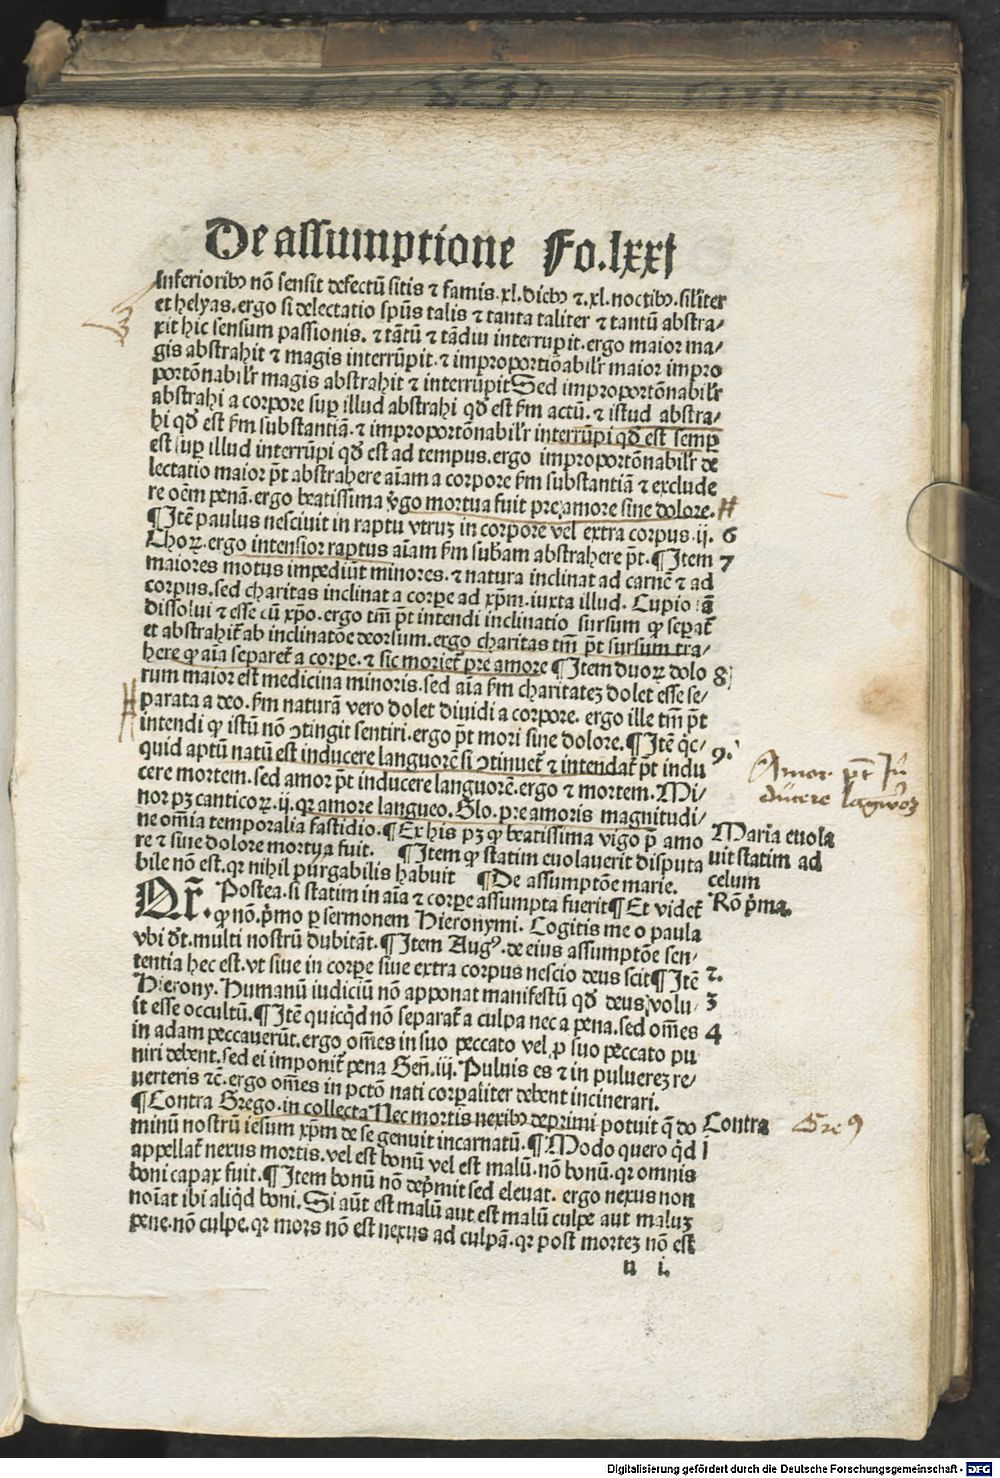 De assumptione Fo.lxxj
inferioribꝰ nō sensit defectū sitis ⁊ famis.xl.diebꝰ ⁊.xl.noctibꝰ.siliter
et helyas.ergo si delectatio spūs talis ⁊ tanta taliter ⁊ tantū abstra⸗
xit hic sensum passionis. ⁊ tātū ⁊ tādiu interrupit.ergo maior ma⸗
gis abstrahit ⁊ magis interrūpit.⁊ improportiōabilr̄ maior impro
portōnabilr̄ magis abstrahit ⁊ interrūpit Sed improportōnabilr̄
abstrahi a corpore suꝑ illud abstrahi qd̄ est ẜm actū.⁊ istud abstra⸗
hi qd̄ est ẜm substantiā.⁊ improportōnabilr̄ interrūpi qd̄ est semꝑ
est suꝑ illud interrūpi qd̄ est ad tempus.ergo improportōnabilr̄ de
lectatio maior pt̄ abstrahere aīam a corpore ẜm substantiā ⁊ exclude
re oēm penā.ergo beatissima v̾go mortua fuit pre amore sine dolore.
¶Itē paulus nesciuit in raptu vtruꝫ in corpore vel extra corpus.ij. 6
Choꝝ.ergo intensior raptus aīam ẜm sub̄am abstrahere pt̄.¶Item 7
maiores motus impediūt minores.⁊ natura inclinat ad carnē ⁊ ad
corpus.sed charitas inclinat a corꝑe ad xp̄m.iuxta illud. Cupio iā
dissolui ⁊ esse cū xp̄o.ergo tm̄ pt̄ intendi inclinatio sursum ꝙ seꝑat̄
et abstrahit̄ ab inclinatōe deorsum.ergo charitas tm̄ pt̄ sursum tra⸗
here ꝙ aīa separet̄ a corꝑe.⁊ sic moriet̄ pre amore ¶Item duoꝝ dolo 8
rum maior est medicina minoris.sed aīa ẜm charitateꝫ dolet esse se⸗
parata a deo.ẜm naturā vero dolet diuidi a corpore. ergo ille tm̄ pt̄
intendi ꝙ istū nō ↄtingit sentiri.ergo pt̄ mori sine dolore.¶Itē qc̄⸗ 9.
quid aptū natū est inducere languorē si ↄtinuet̄ ⁊ intendat̄ pt̄ indu
cere mortem.sed amor pt̄ inducere languorē.ergo ⁊ mortem.Mi⸗
Amor pt̄ In
ducere lāgworē
nor pꝫ canticoꝝ.ij.qꝛ amore langueo.Glo.pre amoris magnitudi⸗
ne om̄ia temporalia fastidio.¶Ex his pꝫ ꝙ beatissima v̾go p̄ amo
re ⁊ sine dolore mortua fuit. ¶Item ꝙ statim euolauerit disputa
bile nō est.qꝛ nihil purgabilis habuit ¶De assumptōe marie.
Maria euola
uit statim ad
celum
Qr̄. Postea.si statim in aīa ⁊ corꝑe assumpta fuerit ¶Et videt̄
Rō p̄ma.
ꝙ nō.p̄mo ꝑ sermonem Hieronymi. Cogitis me o paula
vbi dt̄.multi nostrū dubitāt.¶Item Augꝰ.de eius assumptōe sen⸗
tentia hec est.vt siue in corꝑe siue extra corpus nescio deus scit ¶Itē 2.
Hierony.Humanū iudiciū nō apponat manifestū qd̄ deus volu⸗ 3
it esse occultū.¶Itē quicqd̄ nō separat̄ a culpa nec a pena.sed om̄es 4
in adam peccauerūt.ergo om̄es in suo peccato vel ꝑ suo peccato pu
niri debent.sed ei imponit̄ pena Gen̄.iij.Puluis es ⁊ in puluereꝫ re⸗
uerteris ⁊c̄.ergo om̄es in pctō nati corꝑaliter debent incinerari.
¶Contra Grego.in collecta Nec mortis nexibꝰ deprimi potuit q̄ do Contra Greꝰ
minū nostrū iesum xp̄m de se genuit incarnatū.¶Modo quero qd̄ i
appellat̄ nexus mortis.vel est bonū vel est malū.nō bonū.qꝛ omnis
boni capax fuit.¶Item bonū nō dep̄mit sed eleuat. ergo nexus non
noīat ibi aliqd̄ boni.Si aūt est malū aut est malū culpe aut maluꝫ
pene.nō culpe.qꝛ mors nō est nexus ad culpā.qꝛ post morteꝫ nō est
n i.
Digitalisierung gefördert durch die Deutsche Forschungsgemeinschaft - DFG